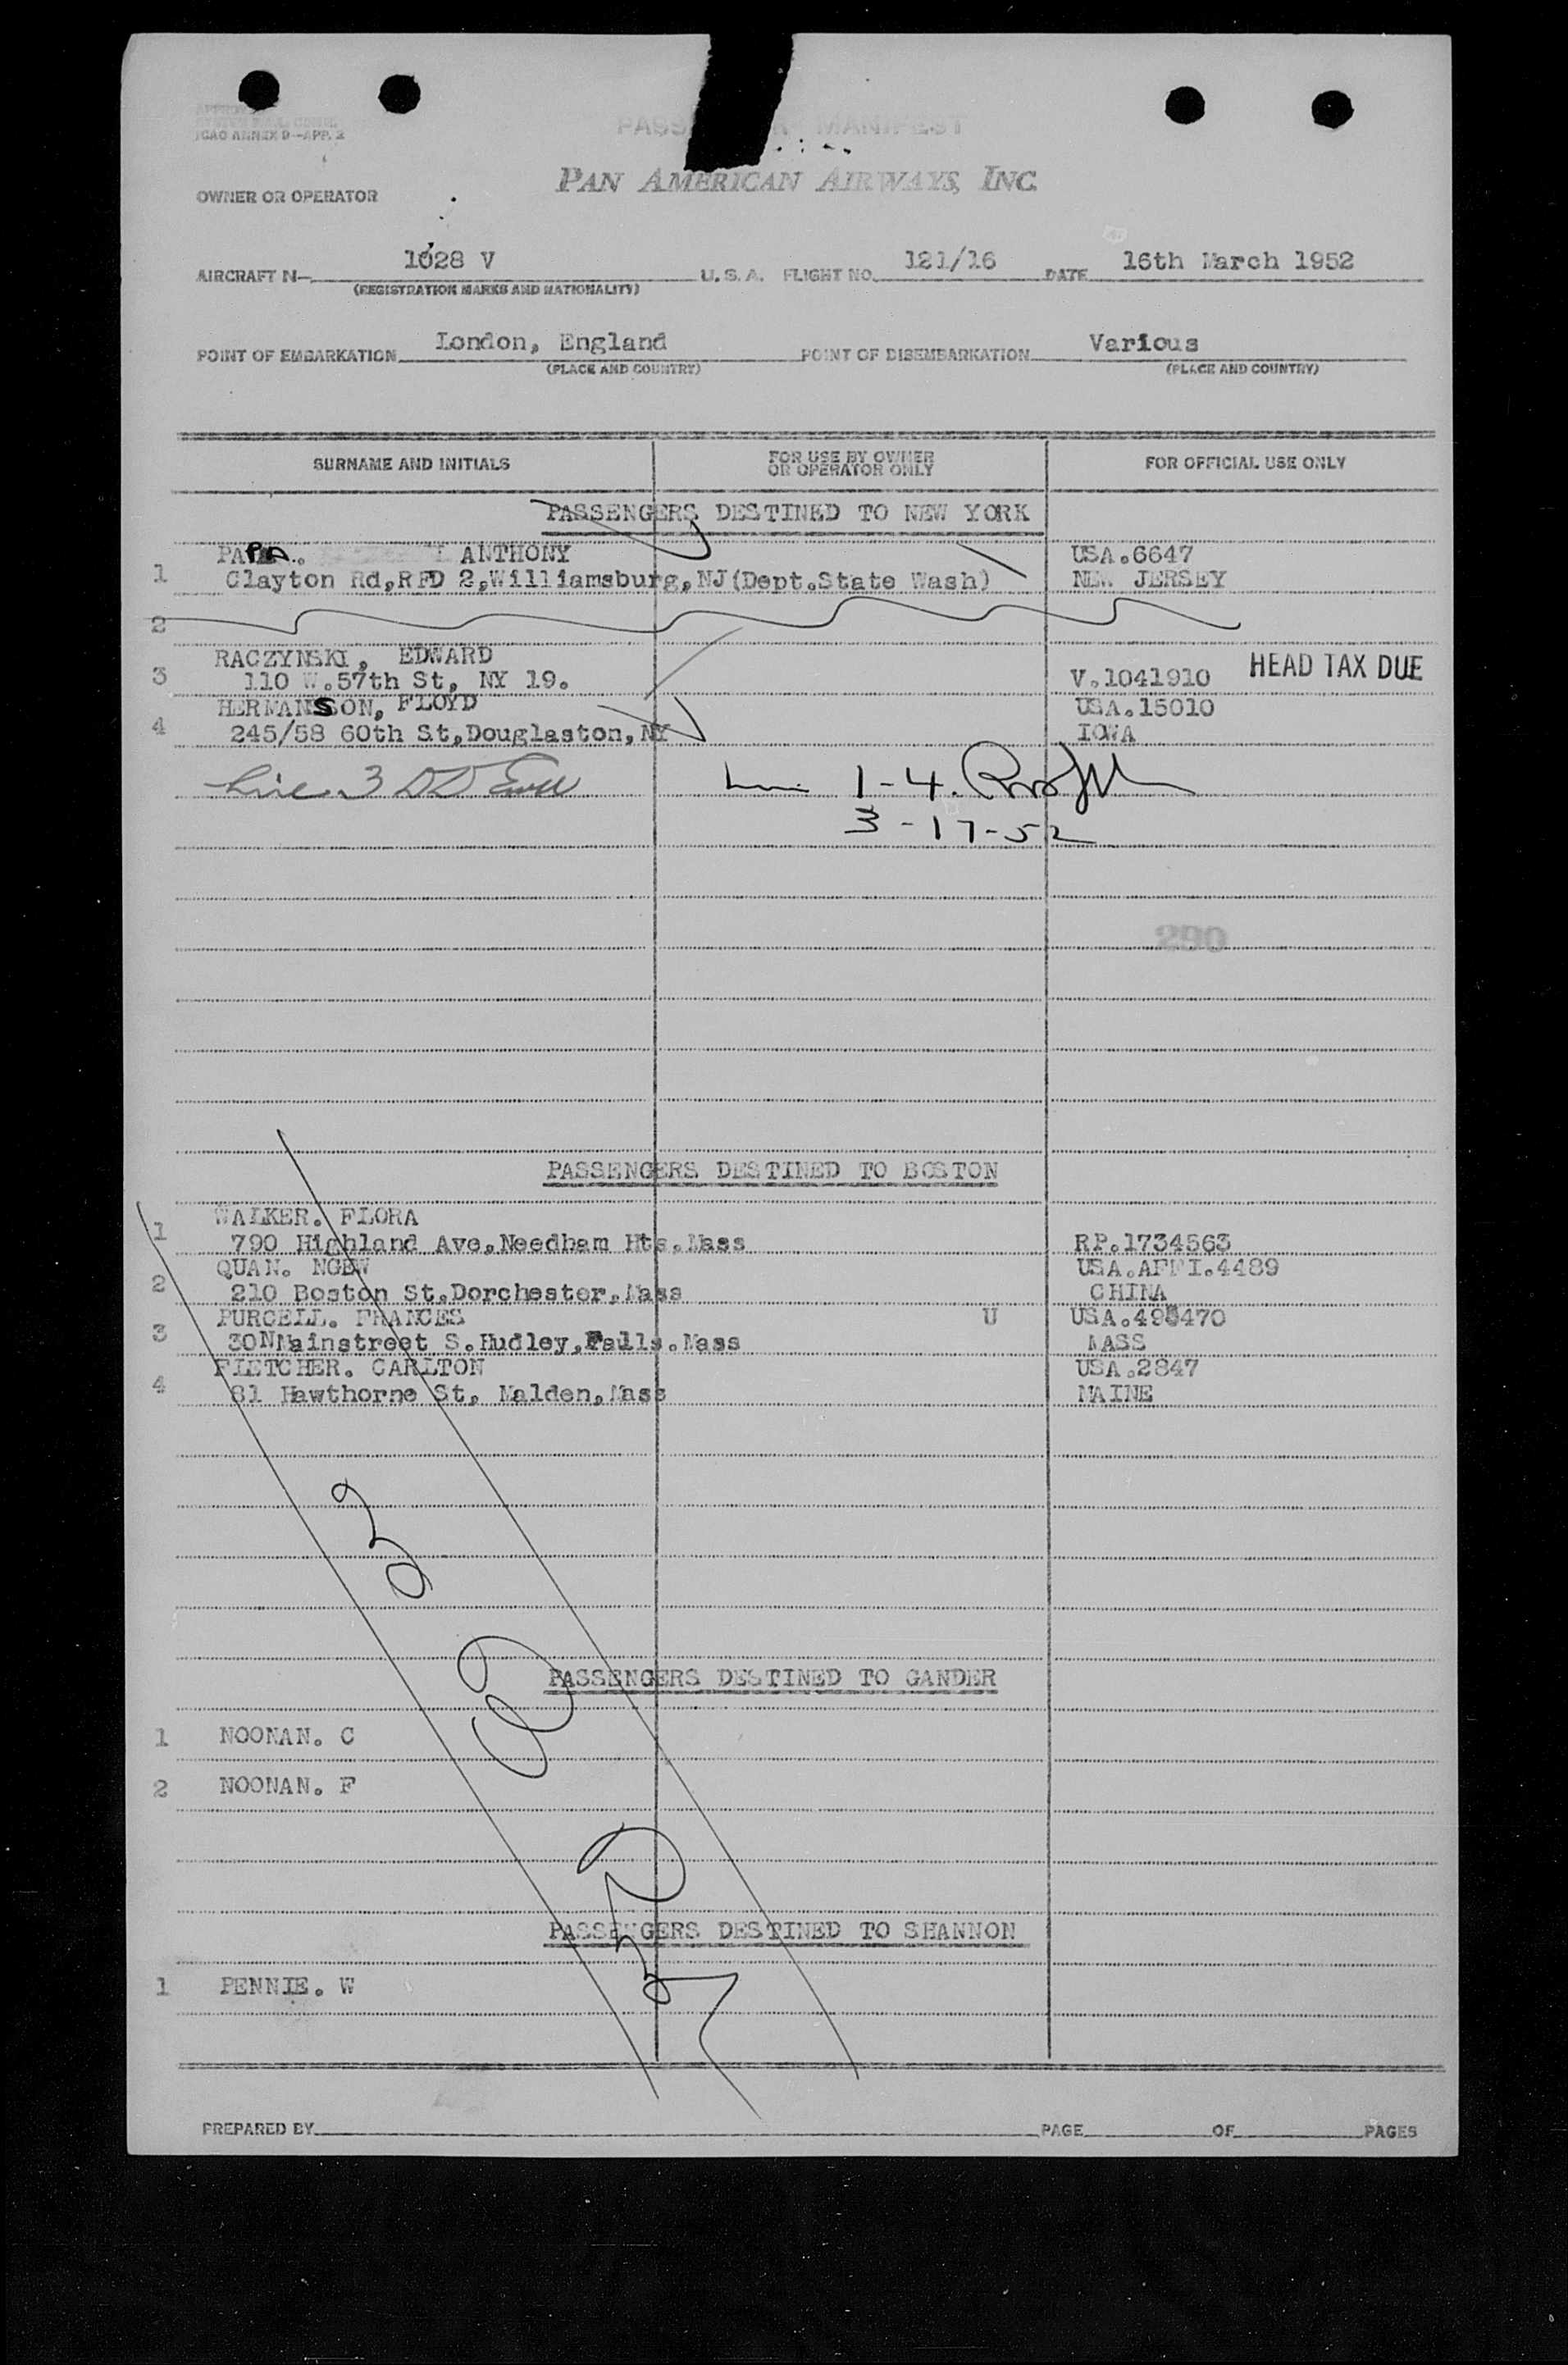 ICAO ANNEX 9—APP. 2
PASS MANIFEST
PAN AMERICAN AIRWAYS, INC.
OWNER OR OPERATOR
AIRCRAFT N— 1028 V U. S. A. FLIGHT NO. 121/16 DATE 16th March 1952
(REGISTRATION MARKS AND NATIONALITY)
POINT OF EMBARKATION London, England POINT OF DISEMBARKATION Various
(PLACE AND COUNTRY) (PLACE AND COUNTRY)
SURNAME AND INITIALS FOR USE BY OWNER OR OPERATOR ONLY FOR OFFICIAL USE ONLY
PASSENGERS DESTINED TO NEW YORK
ANTHONY USA.6647
1 Clayton Rd,RFD 2,Williamsburg,NJ(Dept.State Wash) NEW JERSEY
2
RACZYNSKI, EDWARD
3 110 W.57th St, NY 19. V.1041910 HEAD TAX DUE
HERMANSSON, FLOYD USA.15010
4 245/58 60th St,Douglaston,NY IOWA
Line 3 1-4.
3-17-52
290
PASSENGERS DESTINED TO BOSTON
WALKER. FLORA
1 790 Highland Ave,Needham Hts.Mass RP.1734563
QUAN. NGEW USA.AFFI.4489
2 210 Boston St.Dorchester.Mass CHINA
PURCELL. FRANCES U USA.498470
3 30NMainstreet S.Hudley,Falls.Mass MASS
FLETCHER. CARLTON USA.2847
4 81 Hawthorne St, Malden,Mass MAINE
PASSENGERS DESTINED TO GANDER
1 NOONAN. C
2 NOONAN. F
PASSENGERS DESTINED TO SHANNON
1 PENNIE. W
PREPARED BY PAGE OF PAGES